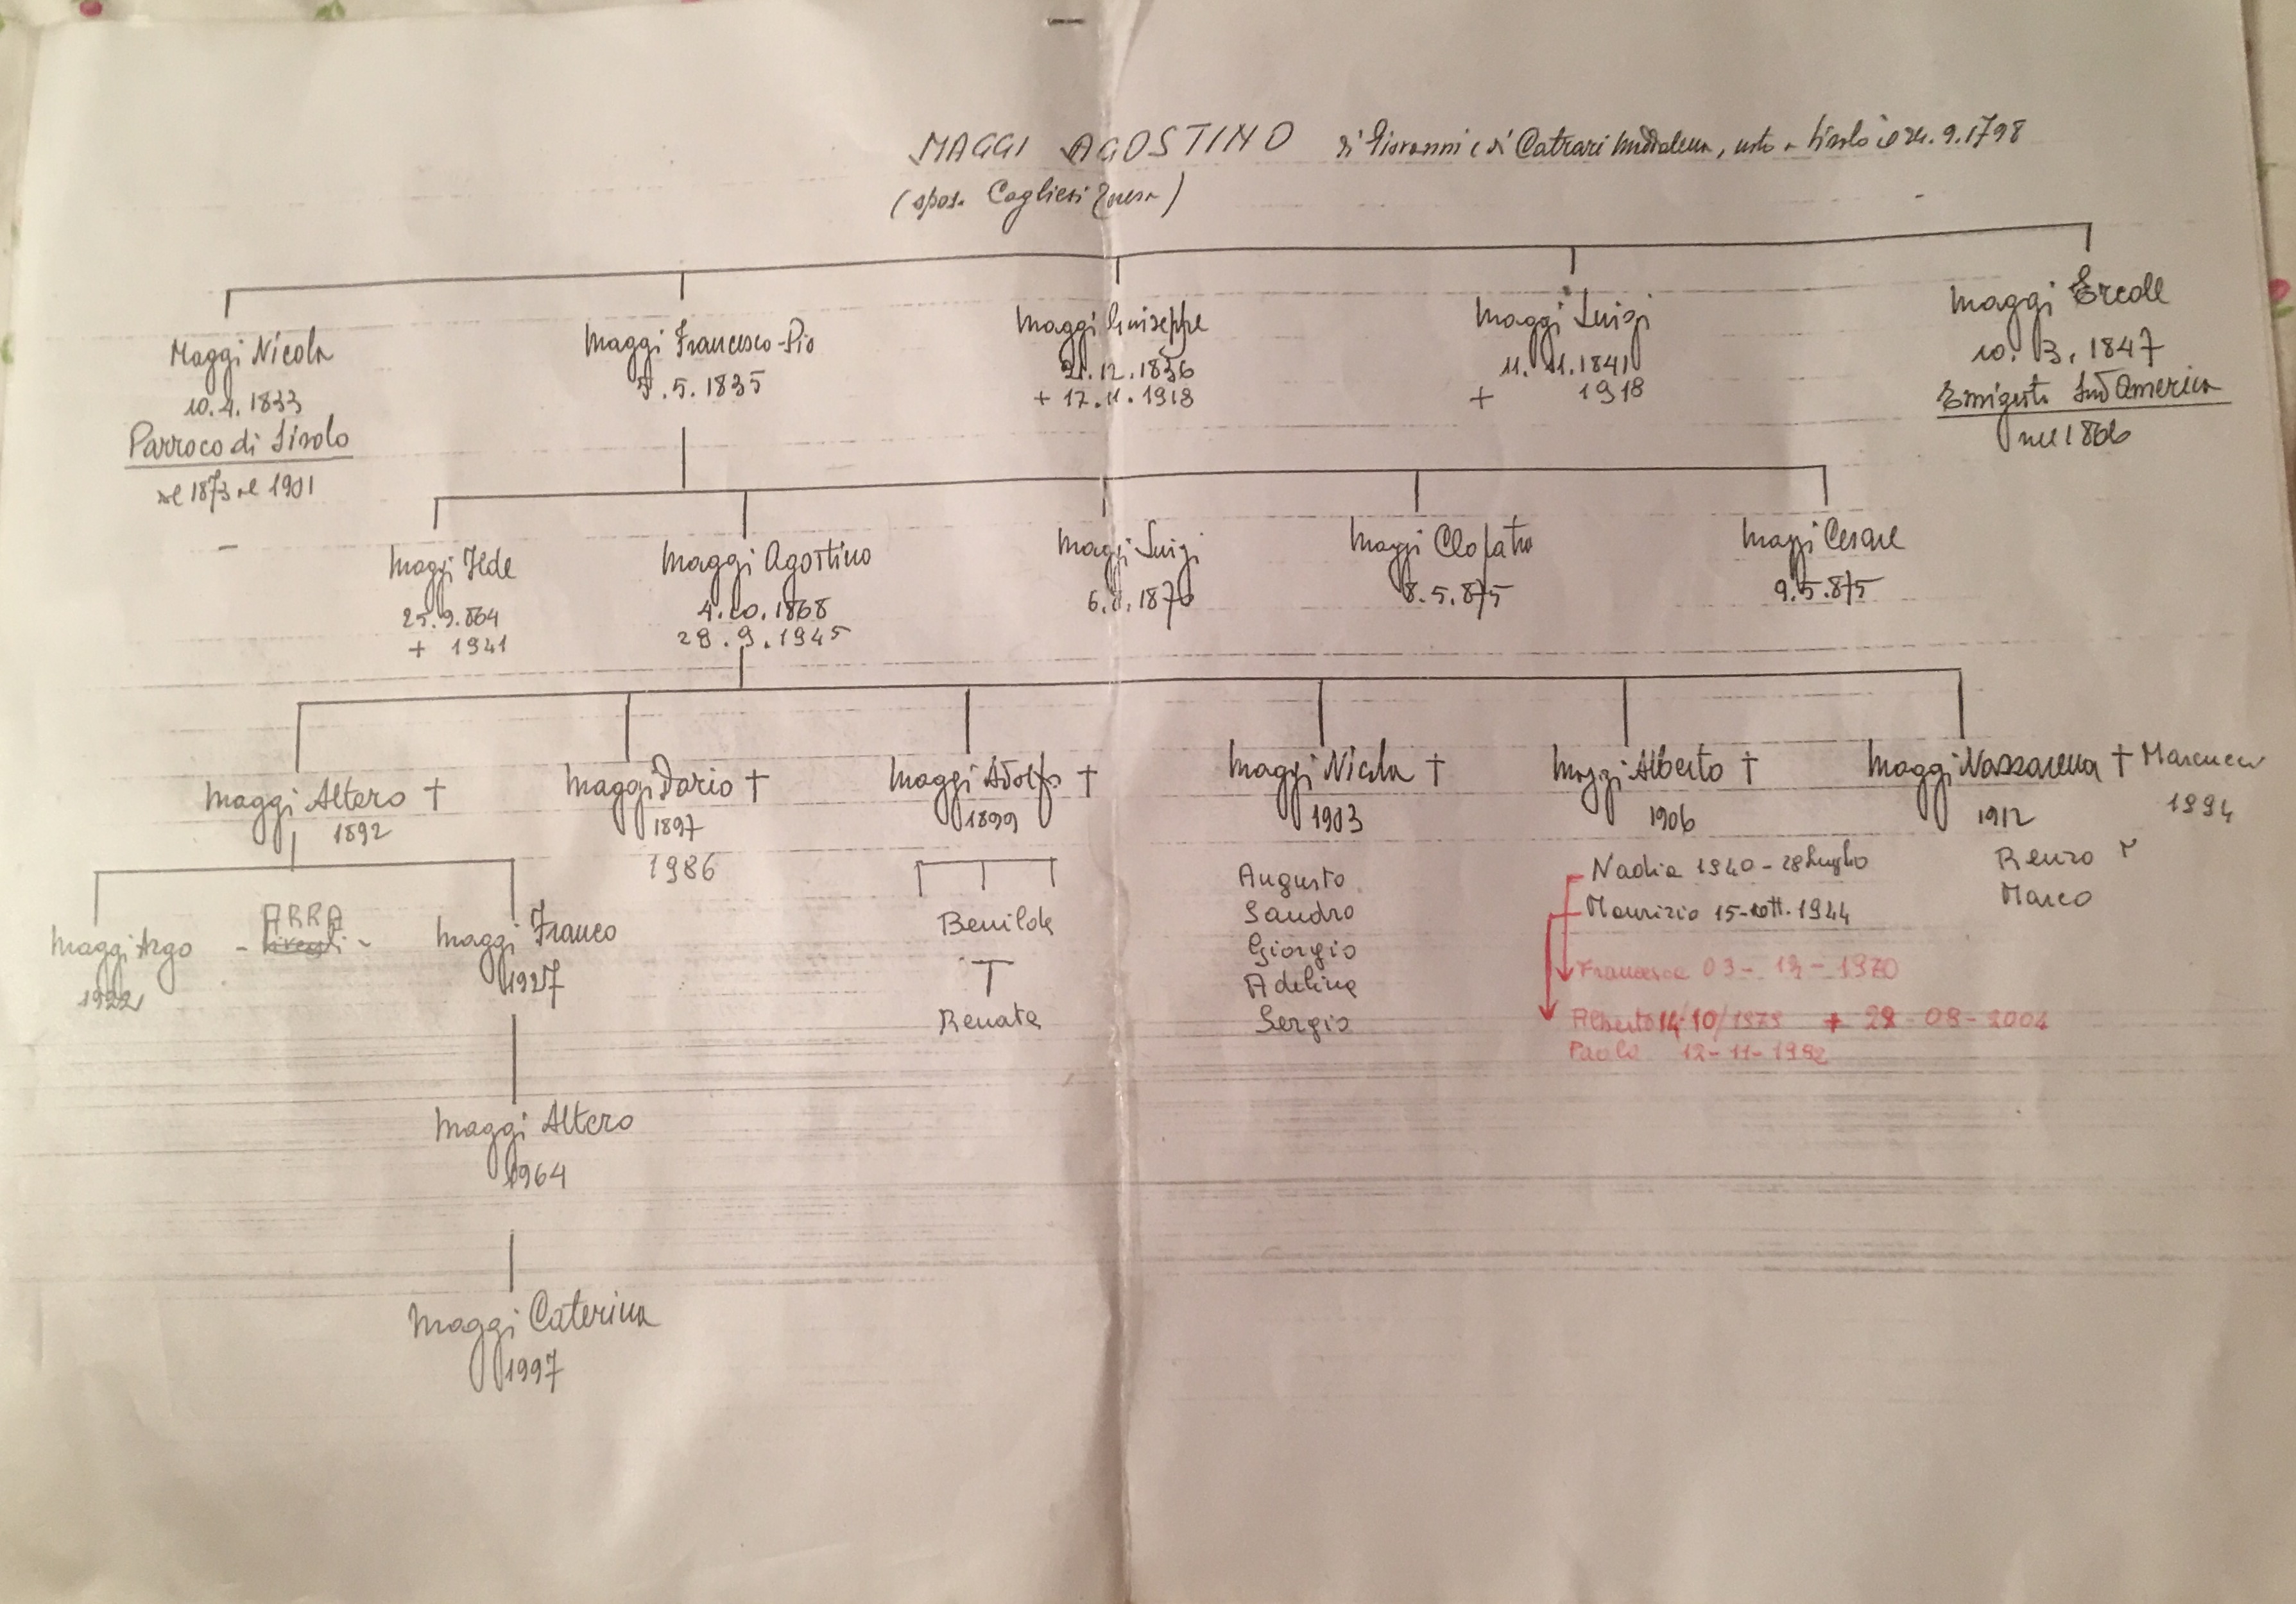 MAGGI AGOSTINO di Giovanni e di Catrari Maddalena, nato a Sirolo il 24.9.1798
(spos. Caglieri )
Maggi Nicola
10.4.1833
Parroco di Sirolo
dal 1873 al 1901
Maggi Francesco-Pio
5.5.1835
Maggi Giuseppe
21.12.1836
+ 17.11.1918
Maggi Luigi
11.11.1841
+ 1918
Maggi Ercole
10.3.1847
Emigrato Sud America
nel 1866
Maggi Ilde
25.9.864
+ 1941
Maggi Agostino
4.10.1868
28.9.1945
Maggi Luigi
Maggi Clofatro
8.5.875
Maggi Cesare
9.5.875
Maggi Altero †
1892
Maggi Dario †
1897
1986
Maggi Adolfo †
1899
Maggi Nicola †
1903
Maggi Alberto †
1906
Maggi Nazzarena † Marcucci
1912 1994
Maggi Argo
1922
ARRA
Maggi Franco
1927
Benilde
Renata
Augusto
Sandro
Giorgio
Adelina
Sergio
Nadia 1940 - 28 Luglio
Maurizio 15-sott. 1944
Francesca 03-12-1970
Alberto 14/10/1979 + 28-08-2004
Paola 12-11-1982
Renzo
Marco
Maggi Altero
1964
Maggi Caterina
1997